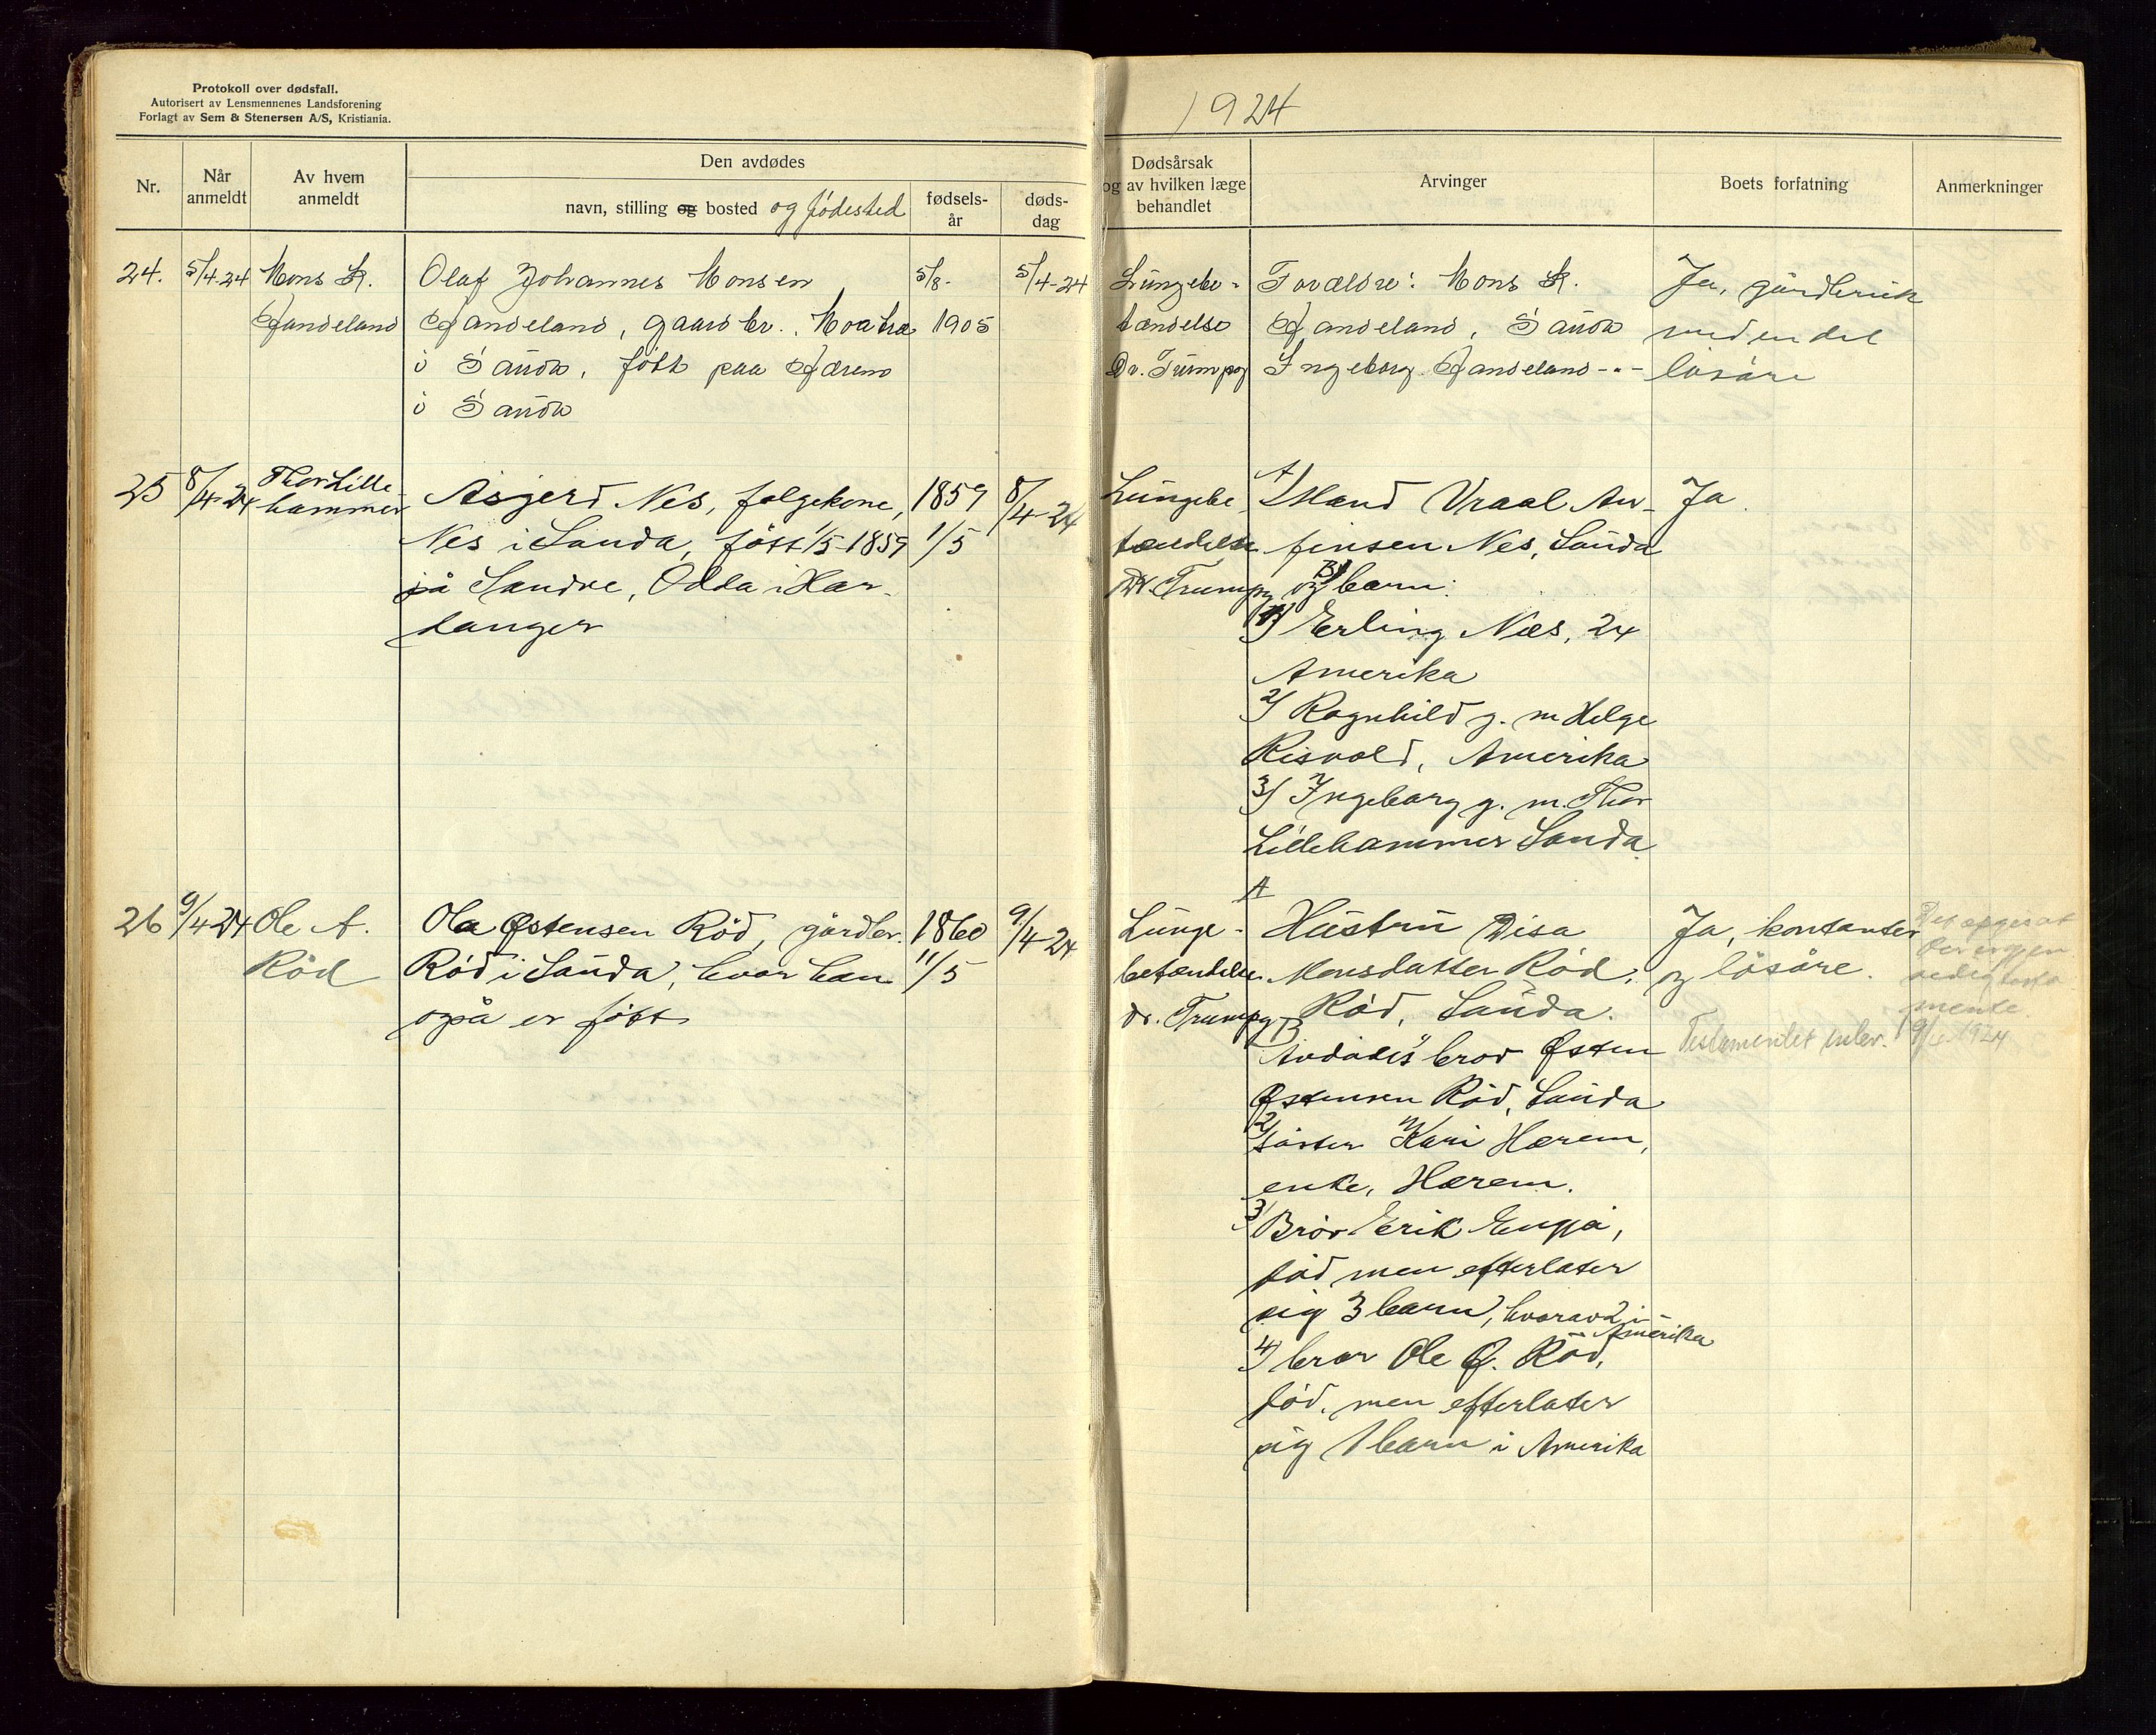 Protokoll over dødsfall.
Autorisert av Lensmennenes Landsforening
Forlagt av Sem & Stenersen A/S, Kristiania.
1924
Nr.
Når anmeldt
Av hvem anmeldt
Den avdødes
navn, stilling og bosted og födested
fødsels-år
døds-dag
Dødsårsak
og av hvilken læge
behandlet
Arvinger
Boets forfatning
Anmerkninger
24.
5/4-24
Mons K.
Handeland
Olaf Johannes Monsen
Handeland, gaardbr.
i Sauda, född paa Hærem
i Sauda
5/8-
1905
5/4-24
Lungebe-
tændelse
Dr. Trumpy
Forældre: Mons K.
Handeland, Sauda
Ingeborg Handeland -"-
Ja, gårdbruk
med en del
lösöre
25
8/4-24
Thor Lille-
hammer
Åsjerd Nes, folgekone,
Nes i Sauda, född 1/5-1859
på Sandve, Odda i Har-
danger
1859
1/5
8/4-24
Lungebe-
tændelse
Dr. Trumpy
A/
Mand Vraal Au-
finsen Nes, Sauda
og B/ barn:
1/ Erling Næs, 24
Amerika
2/ Ragnhild g. m Helge
Risvold, Amerika
3/ Ingeborg g. m. Thor
Lillehammer Sauda
Ja
26
9/4-24
Ole A.
Röd
Ola Østensen Röd, gårdbr.
Röd i Sauda, hvor han
også er född
1860
11/5
9/4-24
Lunge-
betændelse
dr. Trumpy
A
Hustru Disa
Monsdatter Röd,
Röd, Sauda.
B
Avdödes bror Østen
Østensen Röd, Sauda
2/ söster Kari Hærem,
enke, Hærem.
3/ Bror Erik
död men efterlater
sig 3 barn, hvorav 2 i
Amerika
4/ bror Ole Ø. Röd,
död, men efterlater
sig 1 barn i Amerika
Ja, kontanter
og lösöre.
Det opgis at
der er gjen-
sidig testa-
mente.
Testamentet inlev. 19/ 1924